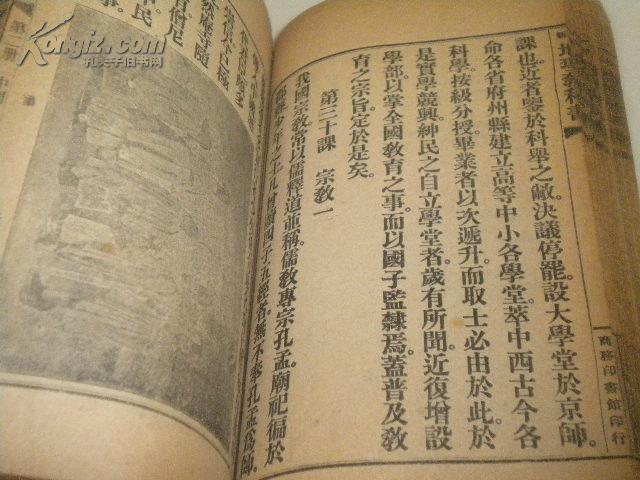 地理教科書
課也。近者鑒於科舉之敝。決議停罷。設大學堂於京師。
命各省府州縣建立高等中小各學堂。萃中西古今各
科學。按級分授。畢業者以次遞升。而取士必由於此。於
是實學競興。紳民之自立學堂者。歲有所聞。近復增設
學部。以掌全國教育之事。而以國子監隸焉。蓋普及教
育之宗旨定於是矣。
第三十課 宗教一
我國宗教。常以儒釋道並稱。儒教專宗孔孟。廟祀徧於
少年之士。凡曾讀四子五經者。無不奉孔孟爲師。
商務印書館印行
Kongfz.com
孔夫子旧书网